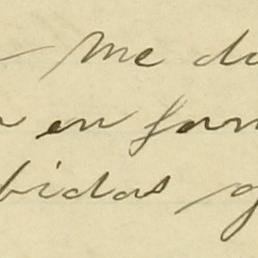 Me da
en form
bidas g